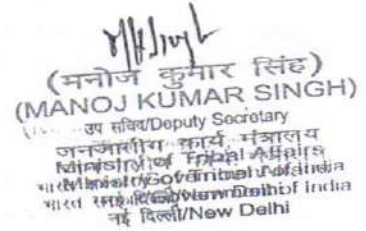 (मनोज कुमार सिंह)
(MANOJ KUMAR SINGH)
उप सचिव/Deputy Secretary
जनजातीय कार्य मंत्रालय
Ministry of Tribal Affairs
भारत
भारत India
नई दिल्ली/New Delhi